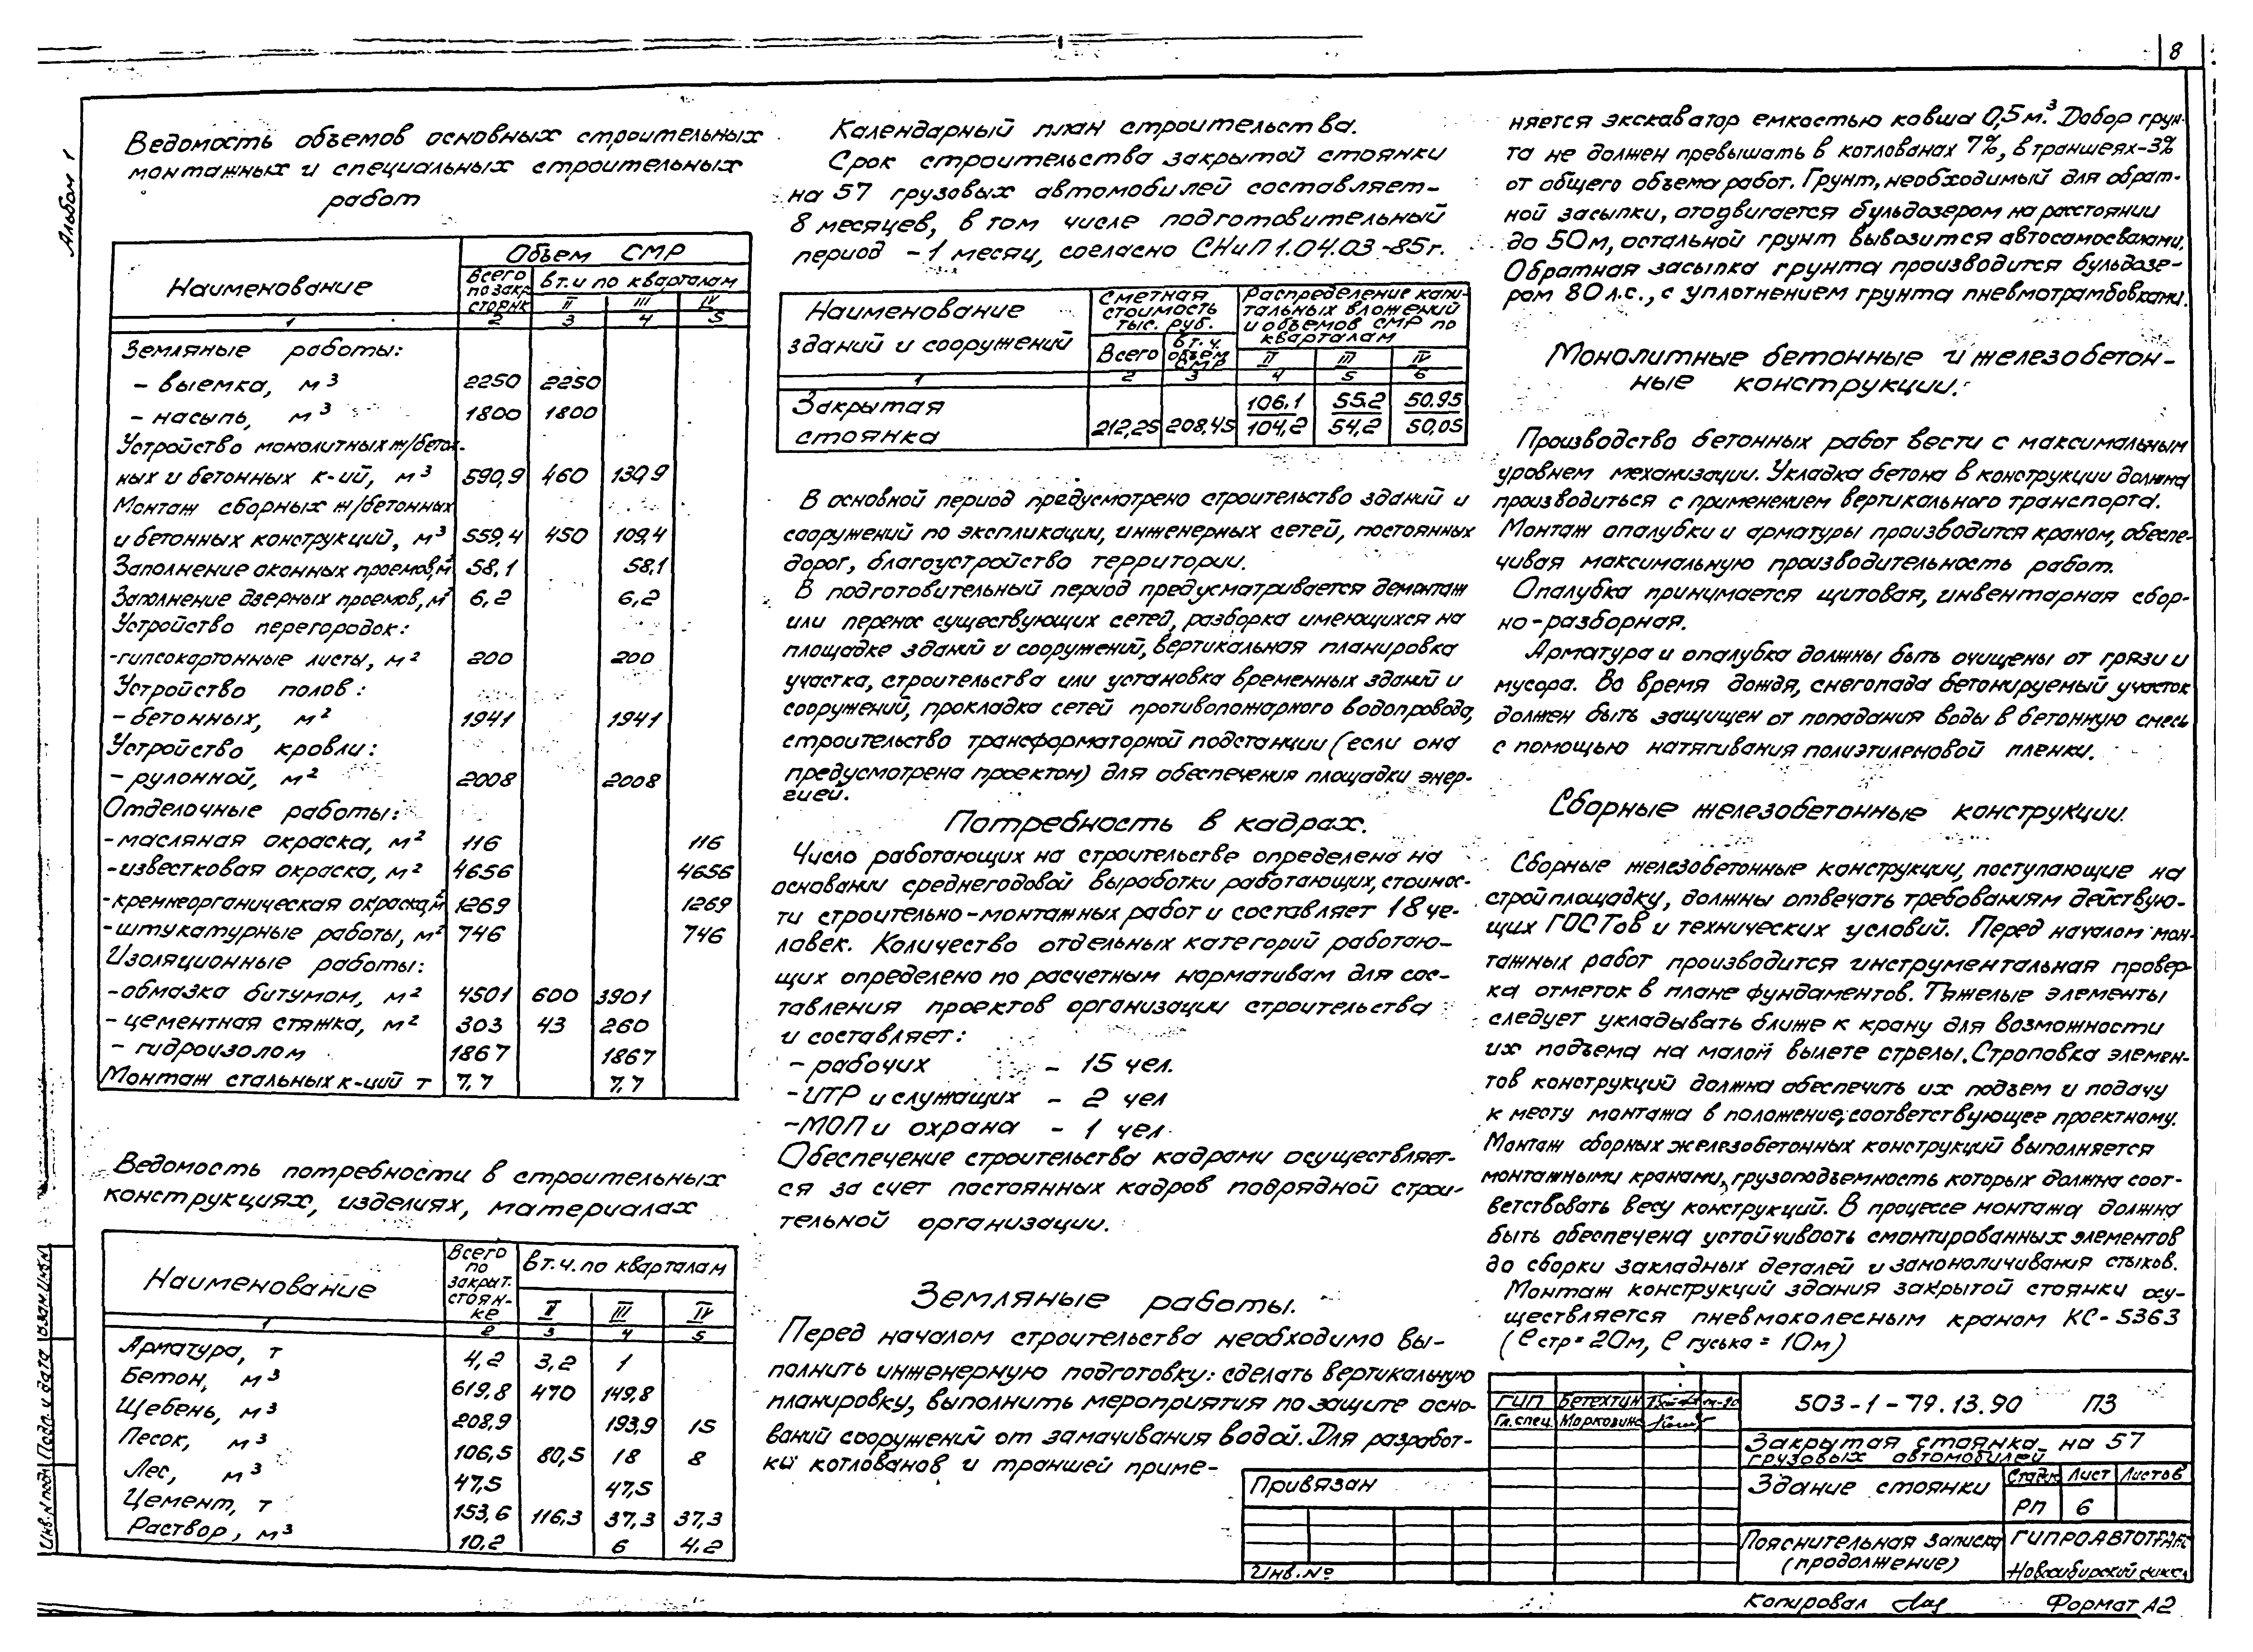 8
Альбом 1
Ведомость объемов основных строительных
монтажных и специальных строительных
работ
Наименование
Объем СМР
Всего по закр. стоянк
в т.ч по кварталам
II III IV
1 2 3 4 5
Земляные работы:
- выемка, м³ 2250 2250
- насыпь, м³ 1800 1800
Устройство монолитных ж/бетон-
ных и бетонных к-ий, м³ 590,9 460 130,9
Монтаж сборных ж/бетонных
и бетонных конструкций, м³ 559,4 450 109,4
Заполнение оконных проемов, м² 58,1 58,1
Заполнение дверных проемов, м² 6,2 6,2
Устройство перегородок:
- гипсокартонные листы, м² 200 200
Устройство полов:
- бетонных, м² 1941 1941
Устройство кровли:
- рулонной, м² 2008 2008
Отделочные работы:
- масляная окраска, м² 116 116
- известковая окраска, м² 4656 4656
- кремнеорганическая окраска, м² 1269 1269
- штукатурные работы, м² 746 746
Изоляционные работы:
- обмазка битумом, м² 4501 600 3901
- цементная стяжка, м² 303 43 260
- гидроизолом 1867 1867
Монтаж стальных к-ций т 7,7 7,7
Ведомость потребности в строительных
конструкциях, изделиях, материалах
Наименование
Всего по закрыт. стоян-ке
в т.ч. по кварталам
II III IV
1 2 3 4 5
Арматура, т 4,2 3,2 1
Бетон, м³ 619,8 470 149,8
Щебень, м³ 208,9 193,9 15
Песок, м³ 106,5 80,5 18 8
Лес, м³ 47,5 47,5
Цемент, т 153,6 116,3 37,3 37,3
Раствор, м³ 10,2 6 4,2
Календарный план строительства.
Срок строительства закрытой стоянки
на 57 грузовых автомобилей составляет-
8 месяцев, в том числе подготовительный
период - 1 месяц, согласно СНиП 1.04.03-85г.
Наименование
зданий и сооружений
Сметная стоимость тыс. руб.
Распределение капи-
тальных вложений
и объемов СМР по
кварталам
Всего в т.ч. объем СМР II III IV
1 2 3 4 5 6
Закрытая 106,1 55.2 50.95
стоянка 212,25 208,45 104,2 54,2 50,05
В основной период предусмотрено строительство зданий и
сооружений по экспликации, инженерных сетей, постоянных
дорог, благоустройство территории.
В подготовительный период предусматривается демонтаж
или перенос существующих сетей, разборка имеющихся на
площадке зданий и сооружений, вертикальная планировка
участка, строительства или установка временных зданий и
сооружений, прокладка сетей противопожарного водопровода,
строительство трансформаторной подстанции (если она
предусмотрена проектом) для обеспечения площадки энер-
гией.
Потребность в кадрах.
Число работающих на строительстве определено на
основании среднегодовой выработки работающих, стоимос-
ти строительно-монтажных работ и составляет 18 че-
ловек. Количество отдельных категорий работаю-
щих определено по расчетным нормативам для сос-
тавления проектов организации строительства
и составляет:
- рабочих - 15 чел.
- ИТР и служащих - 2 чел
- МОП и охрана - 1 чел.
Обеспечение строительства кадрами осуществляет-
ся за счет постоянных кадров подрядной строи-
тельной организации.
Земляные работы.
Перед началом строительства необходимо вы-
полнить инженерную подготовку: сделать вертикальную
планировку, выполнить мероприятия по защите осно-
ваний сооружений от замачивания водой. Для разработ-
ки котлованов и траншей приме-
няется экскаватор емкостью ковша 0,5м³. Добор грун-
та не должен превышать в котлованах 7%, в траншеях-3%
от общего объема работ. Грунт, необходимый для обрат-
ной засыпки, отодвигается бульдозером на расстоянии
до 50м, остальной грунт вывозится автосамосвалами.
Обратная засыпка грунта производится бульдозе-
ром 80 л.с., с уплотнением грунта пневмотрамбовками.
Монолитные бетонные и железобетон-
ные конструкции.
Производство бетонных работ вести с максимальным
уровнем механизации. Укладка бетона в конструкции должна
производиться с применением вертикального транспорта.
Монтаж опалубки и арматуры производится краном, обеспе-
чивая максимальную производительность работ.
Опалубка принимается щитовая, инвентарная сбор-
но-разборная.
Арматура и опалубка должны быть очищены от грязи и
мусора. Во время дождя, снегопада бетонируемый участок
должен быть защищен от попадания воды в бетонную смесь
с помощью натягивания полиэтиленовой пленки.
Сборные железобетонные конструкции.
Сборные железобетонные конструкции, поступающие на
стройплощадку, должны отвечать требованиям действую-
щих ГОСТов и технических условий. Перед началом мон-
тажных работ производится инструментальная провер-
ка отметок в плане фундаментов. Тяжелые элементы
следует укладывать ближе к крану для возможности
их подъема на малом вылете стрелы. Строповка элемен-
тов конструкций должна обеспечить их подъем и подачу
к месту монтажа в положение, соответствующее проектному.
Монтаж сборных железобетонных конструкций выполняется
монтажными кранами, грузоподъемность которых должна соот-
ветствовать весу конструкций. В процессе монтажа должна
быть обеспечена устойчивость смонтированных элементов
до сборки закладных деталей и замоноличивания стыков.
Монтаж конструкций здания закрытой стоянки осу-
ществляется пневмоколесным краном КС-5363
(ℓ стр = 20м, ℓ гуська = 10м)
Привязан
Инв. №
ГИП Бетехтин
Гл. спец.
503-1-79.13.90 ПЗ
Закрытая стоянка на 57
грузовых автомобилей
Здание стоянки
Стадия Лист Листов
РП 6
Пояснительная записка
(продолжение)
ГИПРОАВТОТРАНС
Новосибирский филиал
Копировал
Формат А2
Инв. N подл Подп. и дата Взам. инв. N